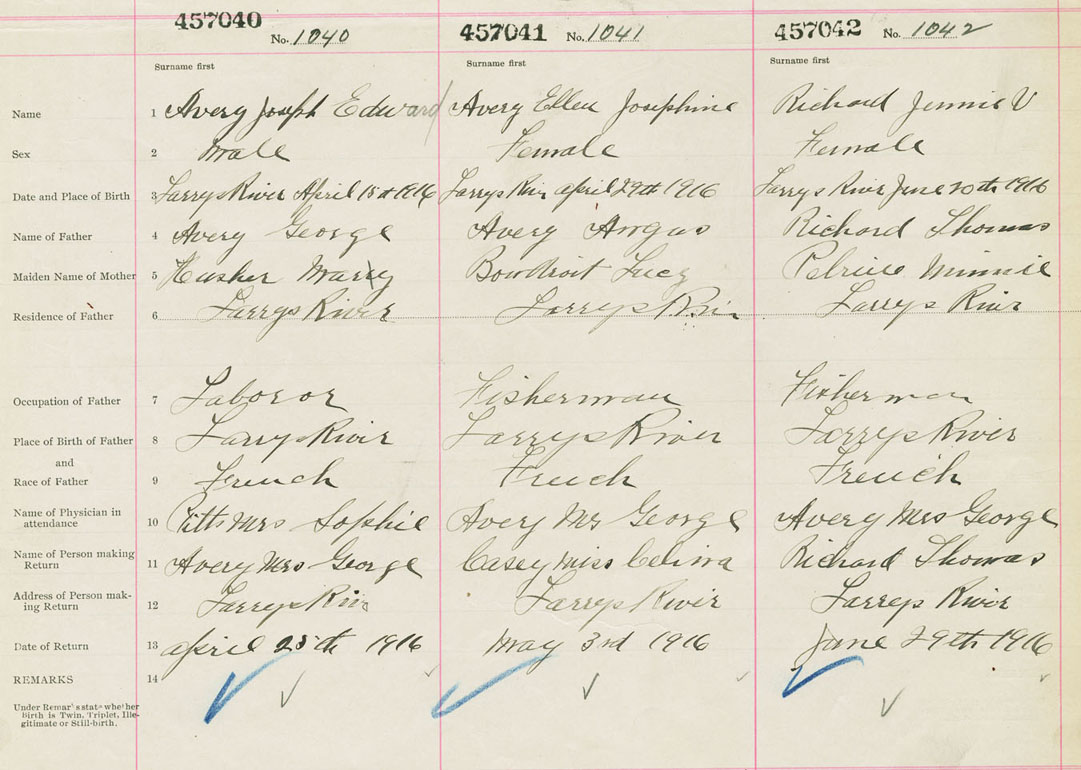 457040 No. 1040 457041 No. 1041 457042 No. 1042
Surname first Surname first Surname first
Name 1 Avery Joseph Edward Avery Ellen Josephine Richard Jennie V
Sex 2 Male Female Female
Date and Place of Birth 3 Larrys River April 18th 1916 Larrys River april 29th 1916 Larrys River June 20th 1916
Name of Father 4 Avery George Avery Angus Richard Thomas
Maiden Name of Mother 5 Mary Lucy Minnie
Residence of Father 6 Larrys River Larrys River Larrys River
Occupation of Father 7 Laboror Fisherman Fisherman
Place of Birth of Father 8 Larrys River Larrys River Larrys River
and
Race of Father 9 French French French
Name of Physician in
attendance 10 Pitts Mrs Sophie Avery Mr George Avery Mrs George
Name of Person making
Return 11 Avery Mrs George Casey Miss Celina Richard Thomas
Address of Person mak-
ing Return 12 Larrys River Larrys River Larrys River
Date of Return 13 april 25th 1916 may 3rd 1916 June 29th 1916
REMARKS 14
Under Remarks state whether
Birth is Twin, Triplet, Ille-
gitimate or Still-birth.